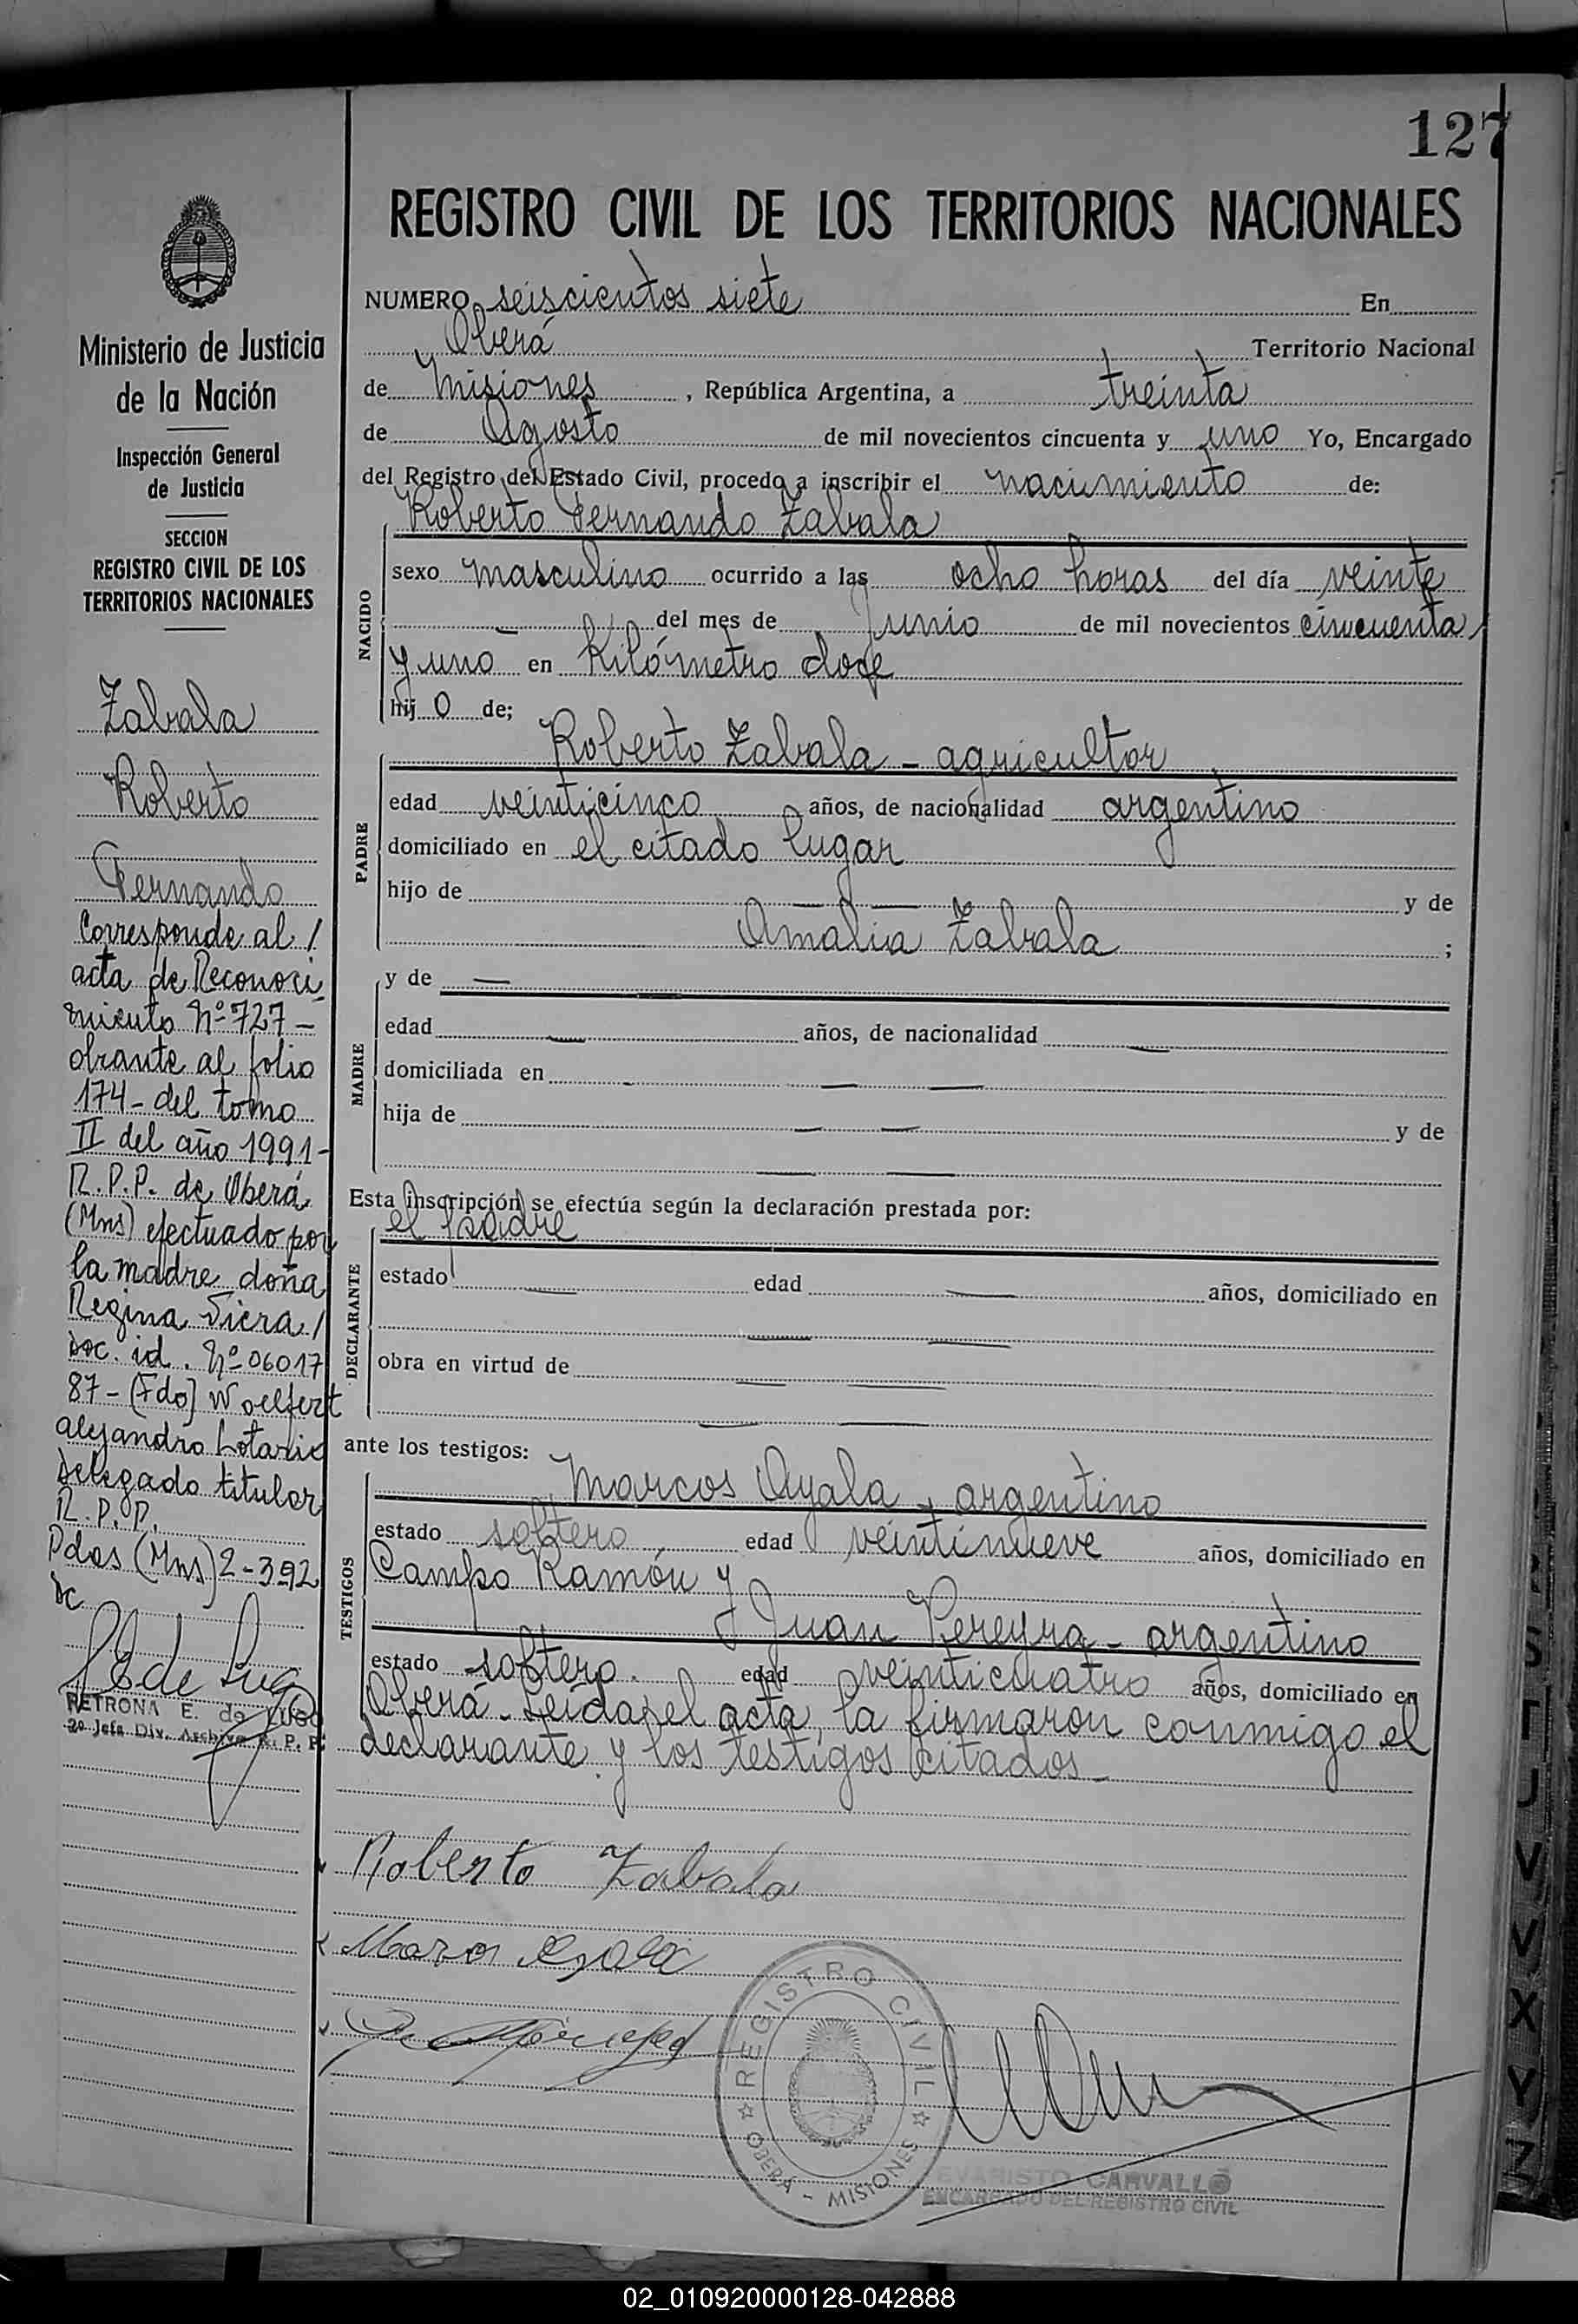 127
REGISTRO CIVIL DE LOS TERRITORIOS NACIONALES
NUMERO seiscientos siete En
Oberá Territorio Nacional
de Misiones , República Argentina, a treinta
de Agosto de mil novecientos cincuenta y uno Yo, Encargado
del Registro del Estado Civil, procedo a inscribir el nacimiento de:
Roberto Fernando Zabala
NACIDO
sexo masculino ocurrido a las ocho horas del día veinte
— del mes de Junio de mil novecientos cincuenta
y uno en Kilómetro doce
hij o de;
Roberto Zabala - agricultor
PADRE
edad veinticinco años, de nacionalidad argentino
domiciliado en el citado lugar
hijo de — — y de
Amalia Zabala ;
y de —
MADRE
edad — años, de nacionalidad —
domiciliada en — —
hija de — — y de
— —
Esta inscripción se efectúa según la declaración prestada por:
el padre
DECLARANTE
estado — edad — años, domiciliado en
— —
obra en virtud de — —
— —
ante los testigos:
Marcos Ayala - argentino
TESTIGOS
estado soltero edad veintinueve años, domiciliado en
Campo Ramón y
Juan Pereyra - argentino
estado soltero. edad veinticuatro años, domiciliado en
Oberá - Leída el acta, la firmaron conmigo el
declarante y los testigos citados -
Roberto Zabala
Marcos Ayala
REGISTRO CIVIL
OBERÁ - MISIONES
EVARISTO CARVALLO
ENCARGADO DEL REGISTRO CIVIL
Ministerio de Justicia
de la Nación
Inspección General
de Justicia
SECCION
REGISTRO CIVIL DE LOS
TERRITORIOS NACIONALES
Zabala
Roberto
Fernando
Corresponde al /
acta de Reconoci
miento Nº 727 -
obrante al folio
174 - del tomo
II del año 1991 -
R.P.P. de Oberá
(Mns) efectuado por
la madre doña
Regina Viera /
Doc. id. Nº 06017
87 - (Fdo) Woelfert
Alejandro Lotario
Delegado titular
R.P.P.
Pdas (Mns) 2-3-92
PETRONA E. de LUGO
2º Jefa Div. Archivo R. P. P.
S
T
U
V
V
X
Y
Z
02_010920000128-042888